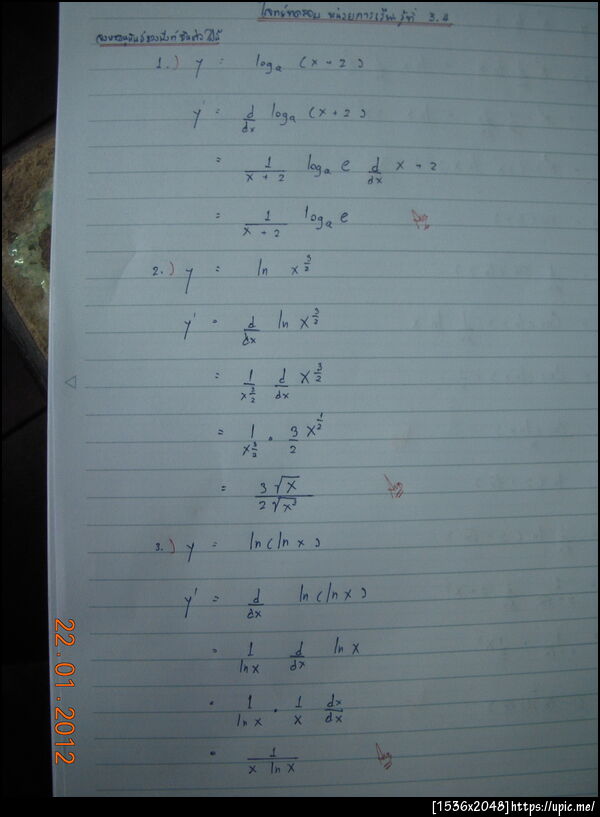 โจทย์ทดสอบ หน่วยการเรียนรู้ที่ 3.2
จงหาอนุพันธ์ของฟังก์ชันต่อไปนี้
1.) y = logₐ (x + 2)
y' = d/dx logₐ (x + 2)
= 1/(x + 2) logₐ e d/dx x + 2
= 1/(x + 2) logₐ e Ans
2.) y = ln x^(3/2)
y' = d/dx ln x^(3/2)
= 1/x^(3/2) d/dx x^(3/2)
= 1/x^(3/2) · 3/2 x^(1/2)
= 3√x / 2√x³ Ans
3.) y = ln(ln x)
y' = d/dx ln(ln x)
= 1/ln x d/dx ln x
= 1/ln x · 1/x dx/dx
= 1/(x ln x) Ans
22.01.2012
[1536x2048]https://upic.me/